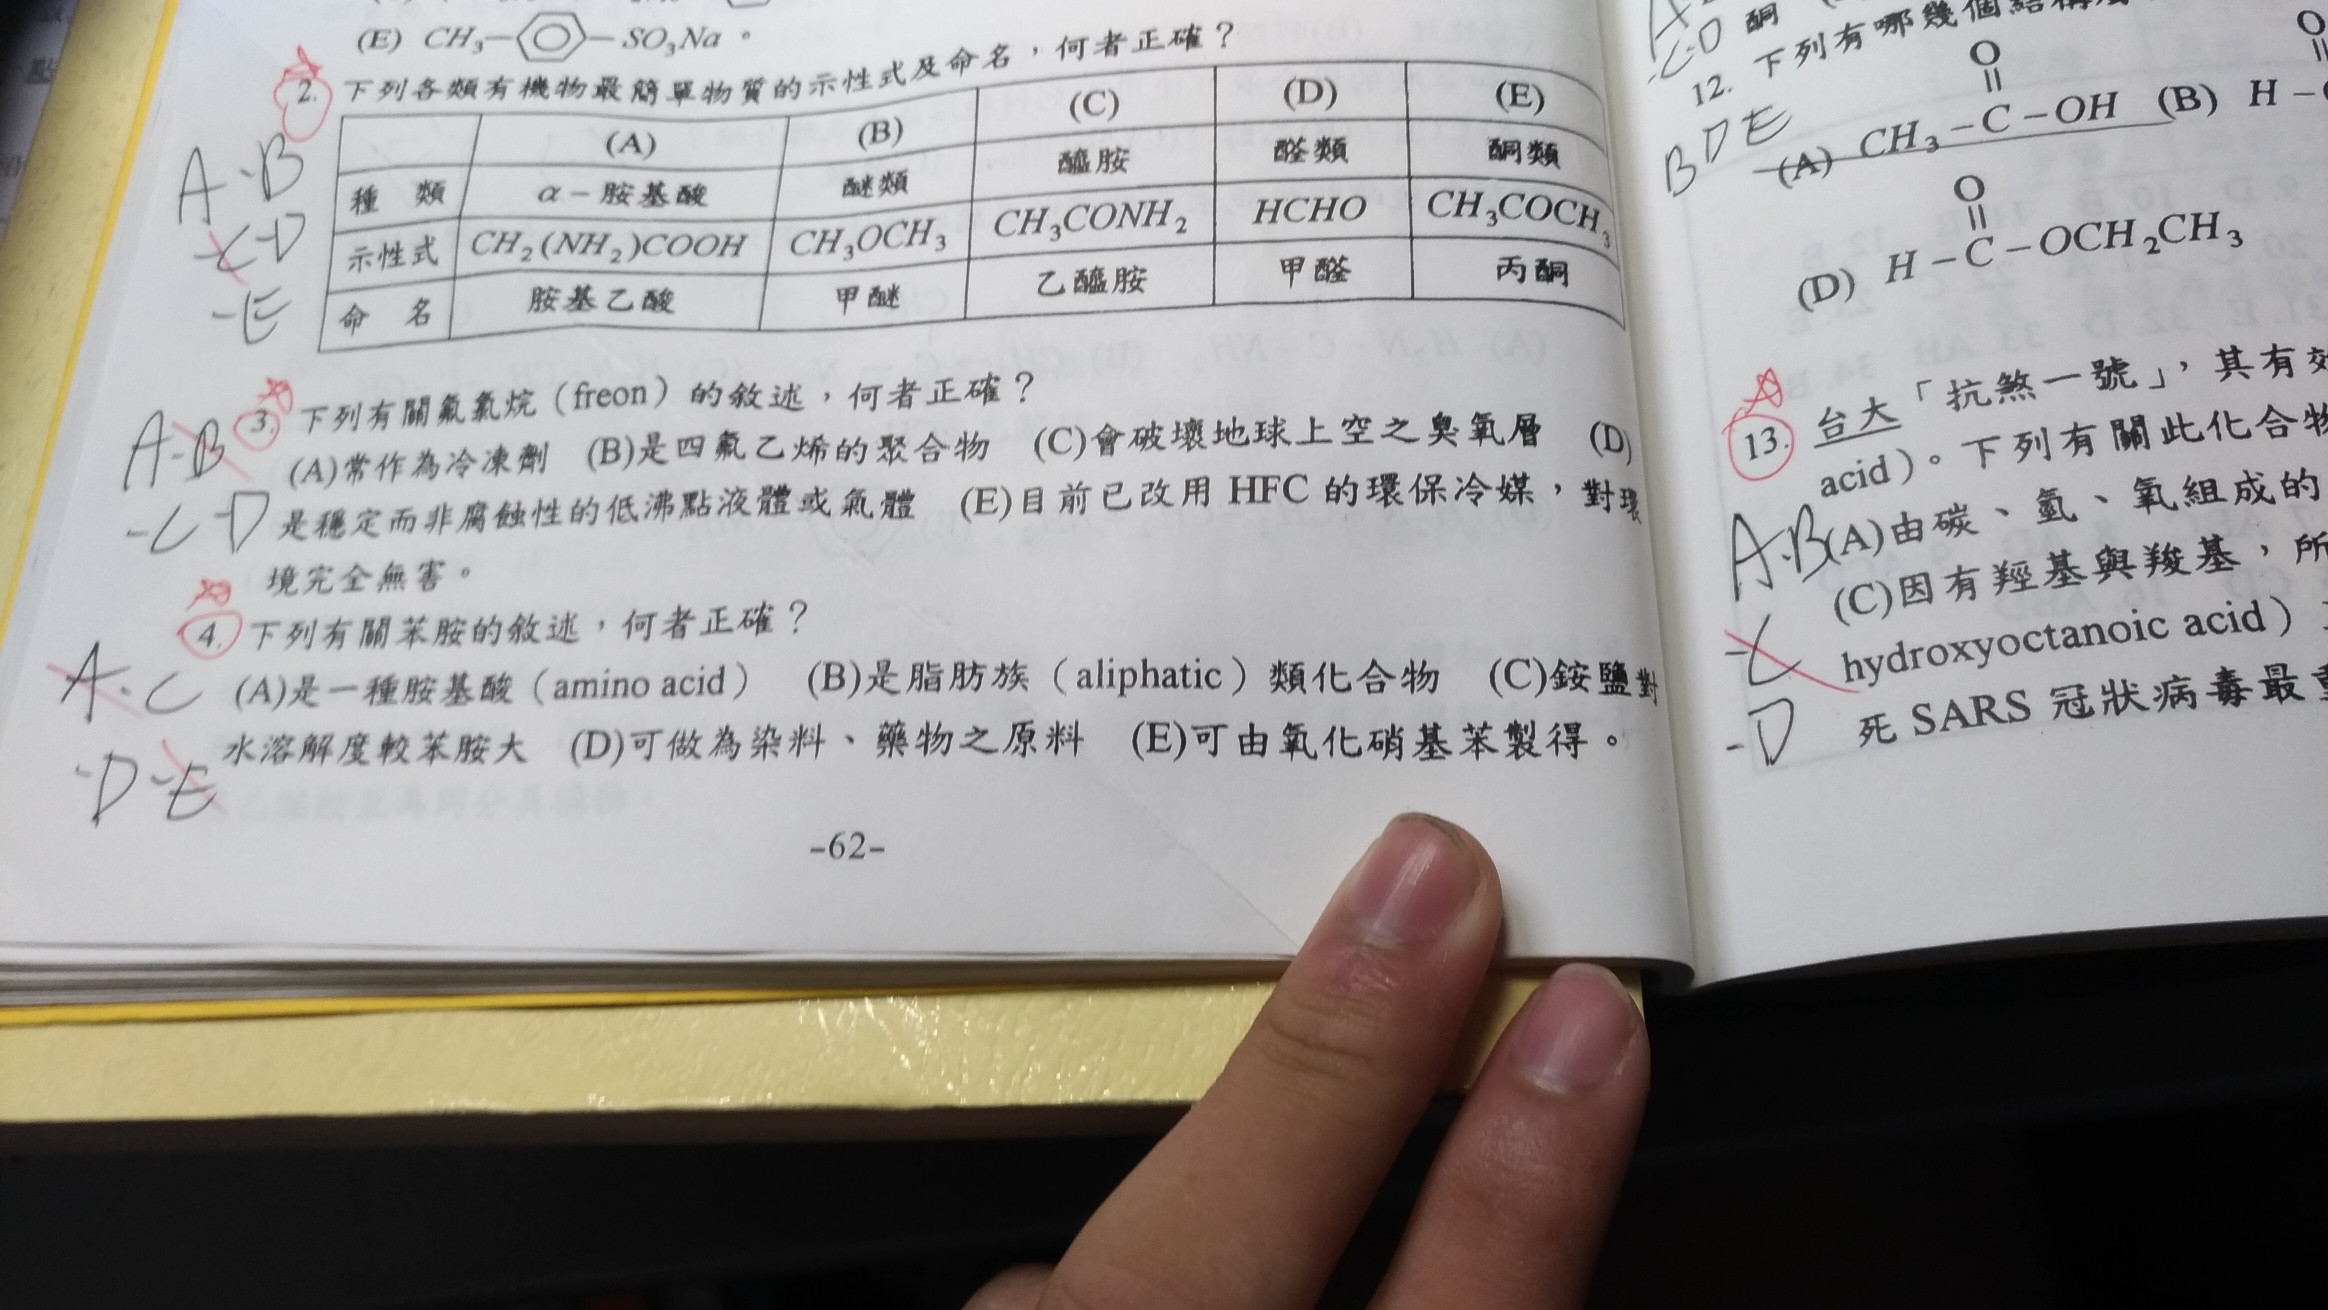 (E) CH₃–⌬–SO₃Na。
2. 下列各類有機物最簡單物質的示性式及命名，何者正確？
(A) (B) (C) (D) (E)
種類 α－胺基酸 醚類 醯胺 醛類 酮類
示性式 CH₂(NH₂)COOH CH₃OCH₃ CH₃CONH₂ HCHO CH₃COCH₃
命名 胺基乙酸 甲醚 乙醯胺 甲醛 丙酮
A、B
、C、D
、E
3. 下列有關氟氯烷（freon）的敘述，何者正確？
(A)常作為冷凍劑 (B)是四氟乙烯的聚合物 (C)會破壞地球上空之臭氧層 (D)
是穩定而非腐蝕性的低沸點液體或氣體 (E)目前已改用 HFC 的環保冷媒，對環
境完全無害。
A、B
、C、D
4. 下列有關苯胺的敘述，何者正確？
(A)是一種胺基酸（amino acid） (B)是脂肪族（aliphatic）類化合物 (C)銨鹽對
水溶解度較苯胺大 (D)可做為染料、藥物之原料 (E)可由氧化硝基苯製得。
A、C
、D、E
-62-
、C、D 酮
12. 下列有哪幾個結構
B D E
(A) CH₃–C–OH (B) H–
O
O
(D) H–C–OCH₂CH₃
O
13. 台大「抗煞一號」，其有效
acid）。下列有關此化合物
(A)由碳、氫、氧組成的
(C)因有羥基與羧基，所
hydroxyoctanoic acid）
死 SARS 冠狀病毒最重
A、B
、C
、D